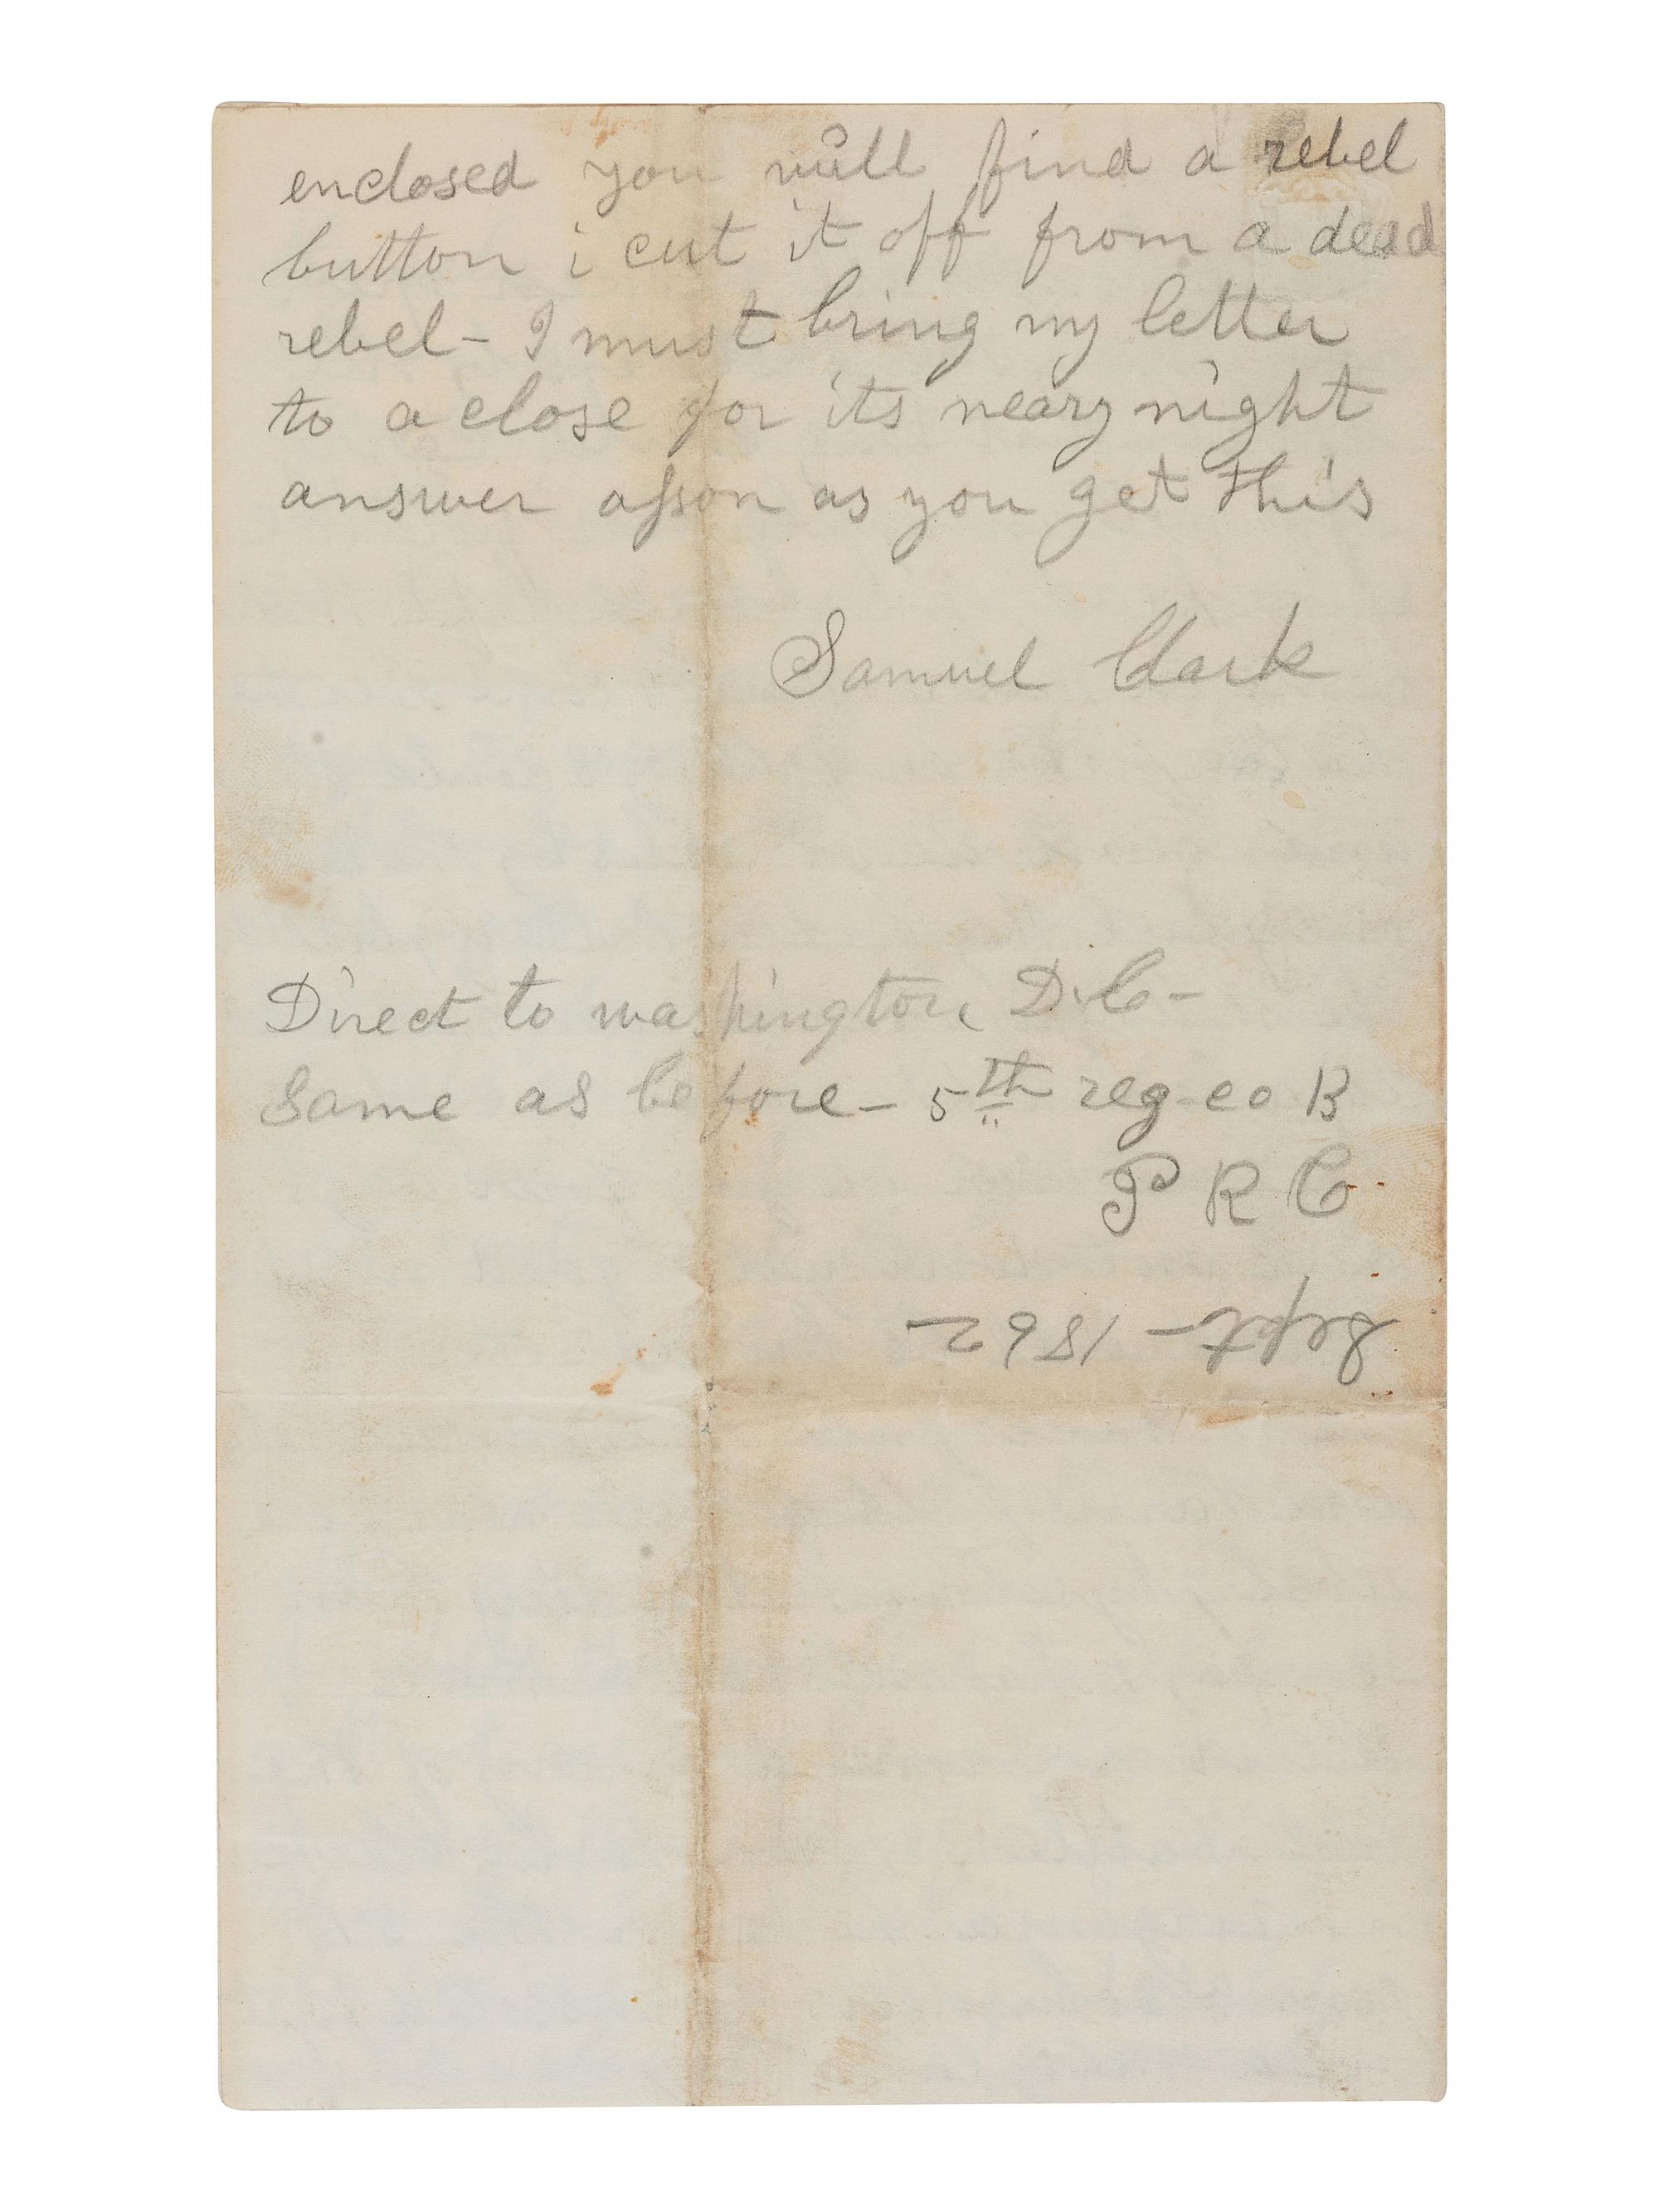 enclosed you will find a rebel
button i cut it off from a dead
rebel - I must bring my letter
to a close for its neary night
answer asson as you get this
Samuel Clark
Direct to washington, D.C -
Same as before - 5th reg - co B
P R C
Sept - 1862